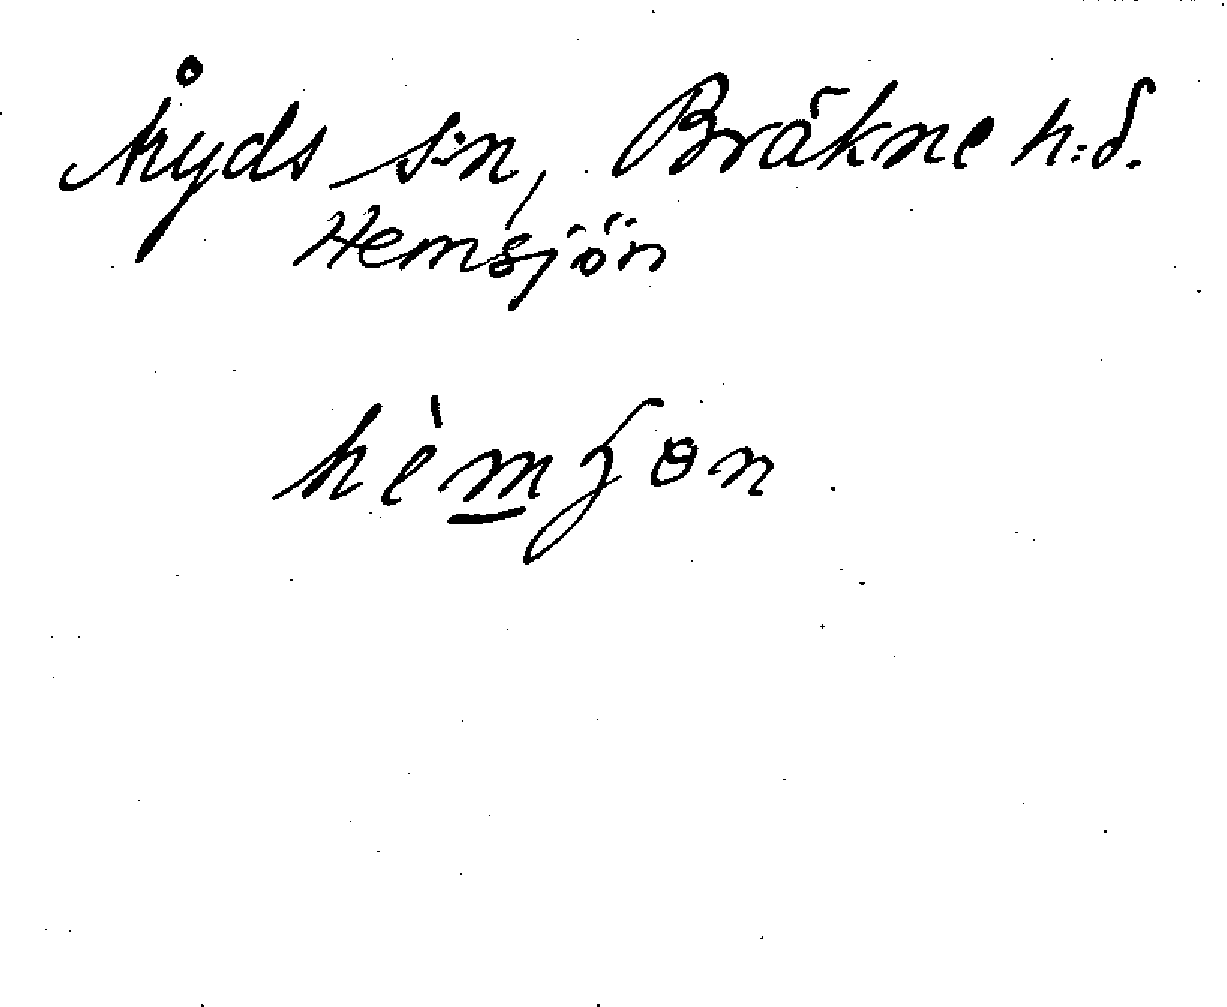 Åryds s:n, Bräkne h:d.
Hemsjön
hèmʃɵn